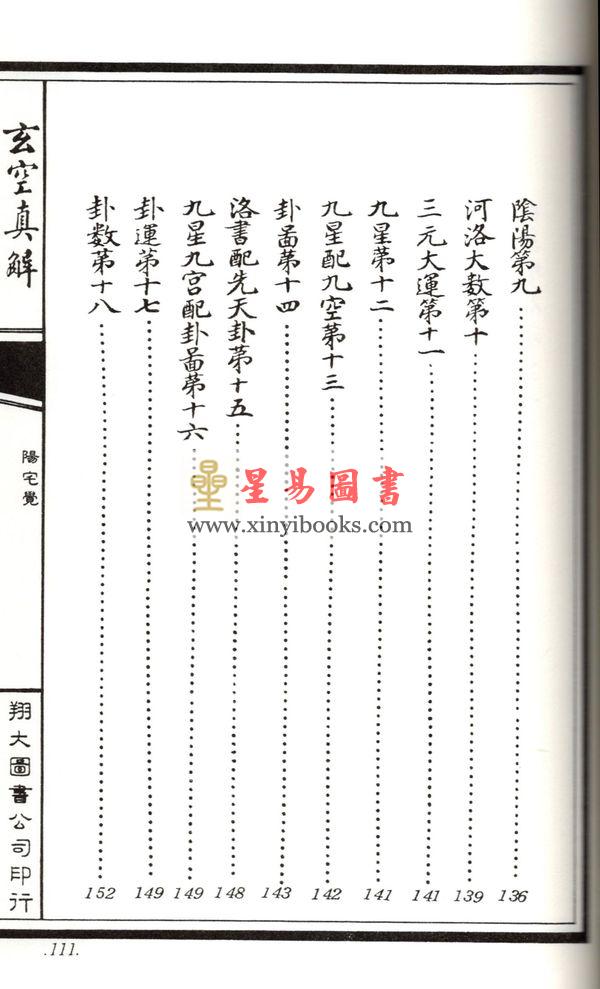 陰陽第九 136
河洛大数第十 139
三元大運第十一 141
九星第十二 141
九星配九空第十三 142
卦啚第十四 143
洛書配先天卦第十五 148
九星九宫配卦啚第十六 149
卦運第十七 149
卦数第十八 152
玄空真解
陽宅覺
翔大圖書公司印行
.111.
星易圖書
www.xinyibooks.com